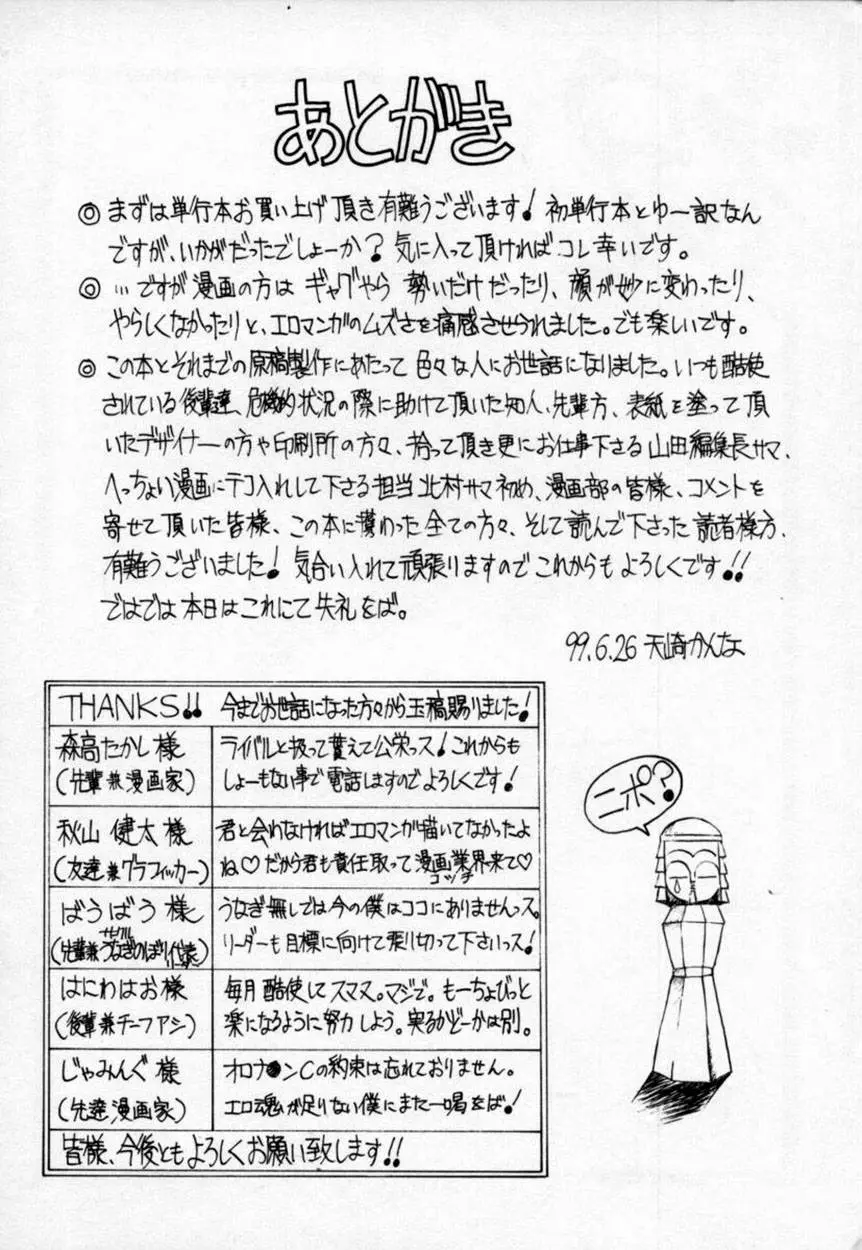 あとがき
◎まずは単行本お買い上げ頂き有難うございます！初単行本とゆー訳なん
ですが、いかがだったでしょーか？気に入って頂ければコレ幸いです。
◎…ですが漫画の方はギャグやら勢いだけだったり、顔が妙に変わったり、
やらしくなかったりと、エロマンガのムズさを痛感させられました。でも楽しいです。
◎この本とそれまでの原稿製作にあたって色々な人にお世話になりました。いつも酷使
されている後輩達、危機的状況の際に助けて頂いた知人、先輩方、表紙を塗って頂
いたデザイナーの方や印刷所の方々、拾って頂き更にお仕事下さる山田編集長サマ、
へっちょい漫画にテコ入れして下さる担当北村サマ初め、漫画部の皆様、コメントを
寄せて頂いた皆様、この本に携わった全ての方々、そして読んで下さった読者様方、
有難うございました！気合い入れて頑張りますのでこれからもよろしくです!!
ではでは本日はこれにて失礼をば。
99.6.26 天崎かんな
THANKS!! 今までお世話になった方々から玉稿賜りました！
森高たかし様
(先輩兼漫画家)
ライバルと扱って貰えて公栄っス！これからも
しょーもない事で電話しますのでよろしくです！
秋山健太様
(友達兼グラフィッカー)
君と会わなければエロマンガ描いてなかったよ
ね♡だから君も責任取って漫画業界来て♡
コッチ
ばうばう様
サークル
(先輩兼うなぎのぼり代表)
うなぎ無しでは今の僕はココにありませんっス。
リーダーも目標に向けて張り切って下さいっス！
はにわはお様
(後輩兼チーフアシ)
毎月酷使してスマヌ。マジで。もーちょびっと
楽になるように努力しよう。実るかどーかは別。
じゃみんぐ様
(先達漫画家)
オロナ●ンCの約束は忘れておりません。
エロ魂が足りない僕にまた一喝をば！
皆様、今後ともよろしくお願い致します!!
ニポ？